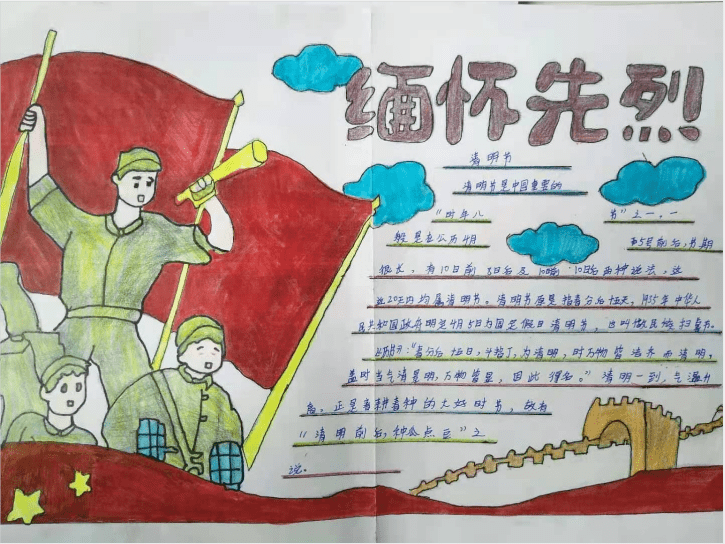 缅怀先烈
清明节
清明节是中国重要的
"时年八
节"之一,一
般是在公历4月
5号前后,节期
很长,有10日前8日后及10日前10日后两种说法,这
近20天内均属清明节。清明节原是指春分后15天,1935年中华人
民共和国政府明定4月5日为国定假日清明节,也叫做民族扫墓节。
:"春分后15日,斗指丁,为清明,时万物皆洁齐而清明,
盖时当气清景明,万物皆显,因此得名。"清明一到,气温升
高,正是春耕春种的大好时节,故有
"清明前后,种瓜点豆"之
说。